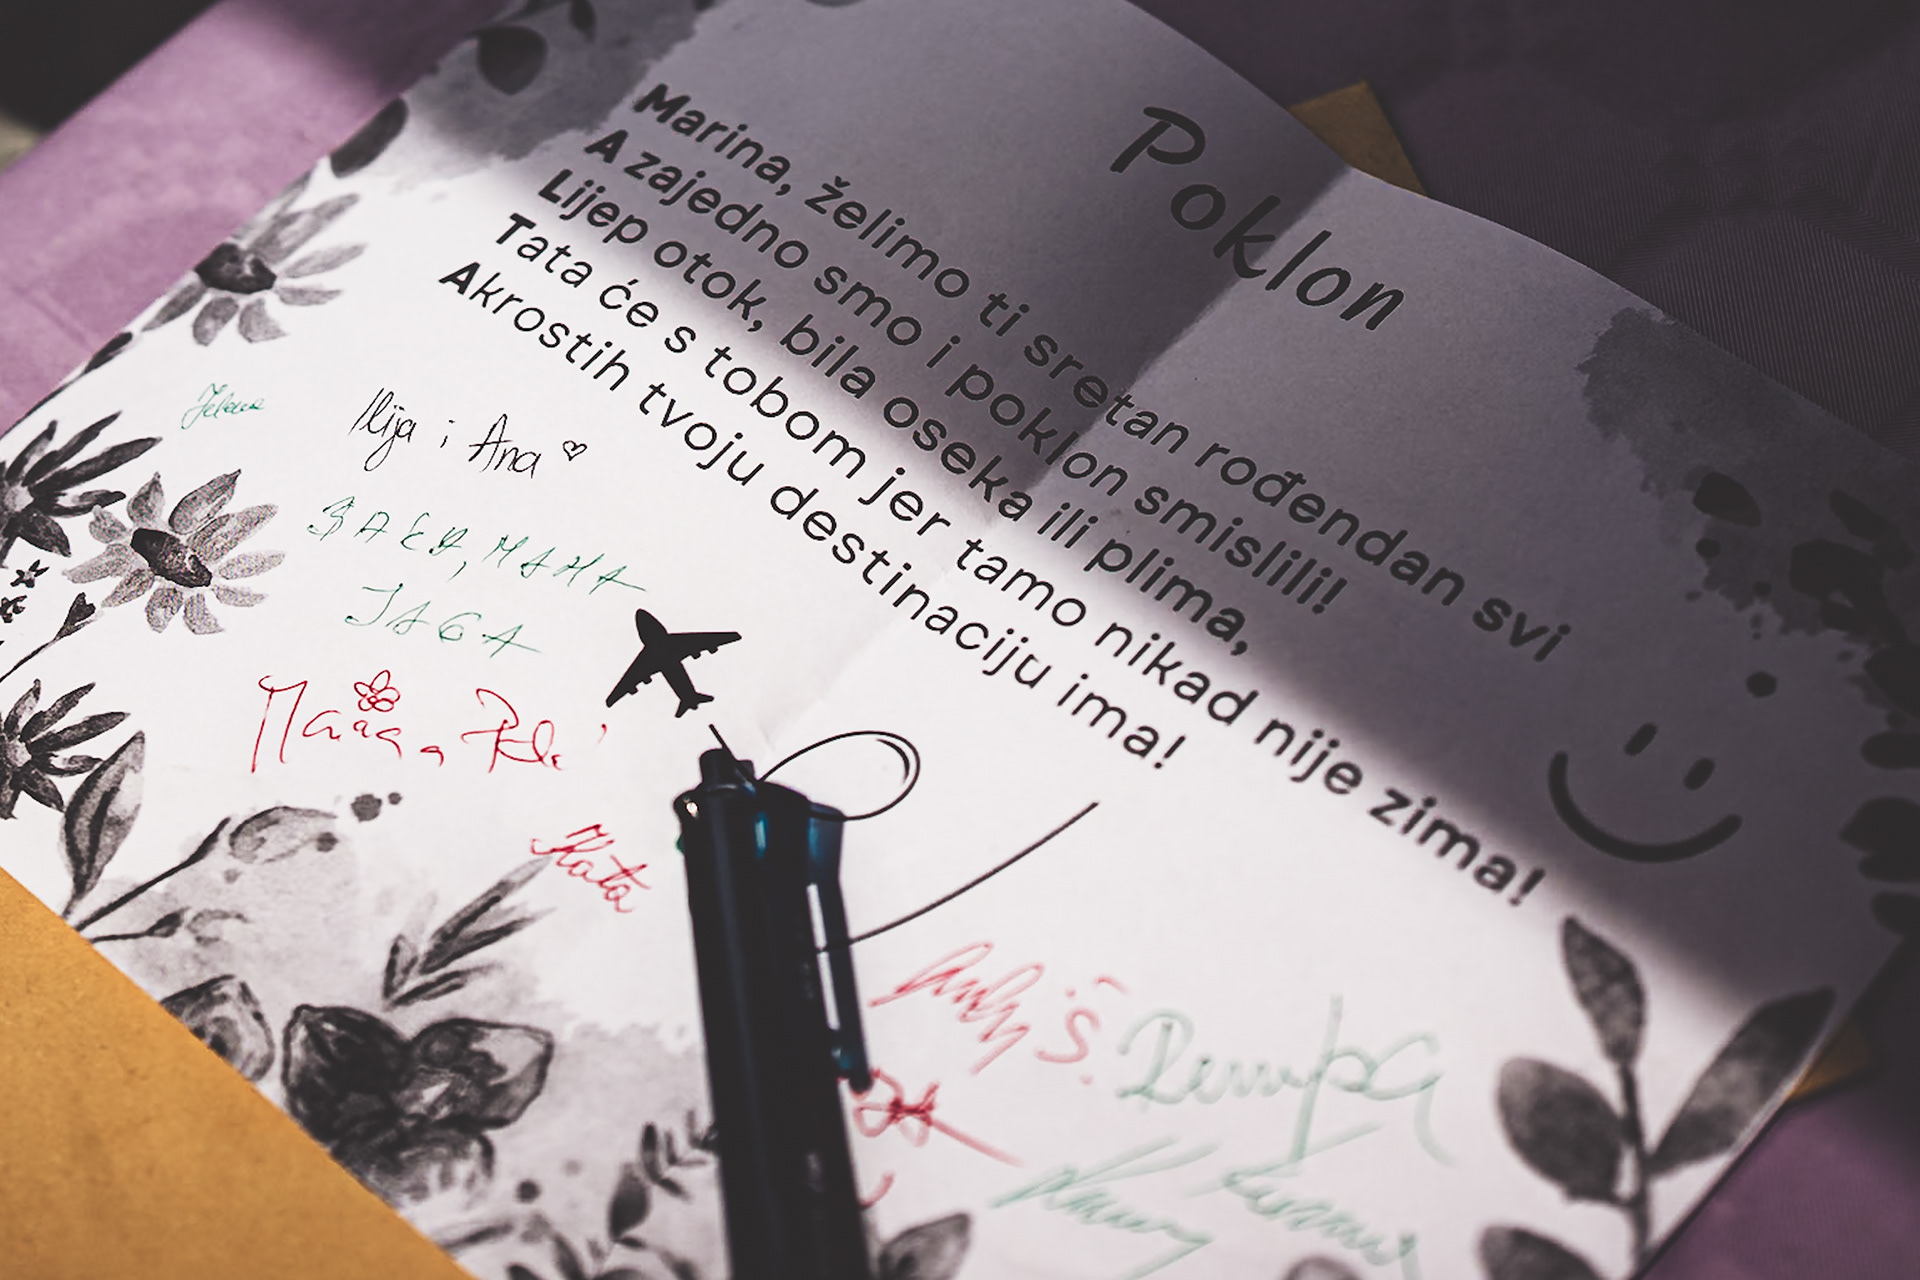 Poklon
Marina, želimo ti sretan rođendan svi
A zajedno smo i poklon smislili!
Lijep otok, bila oseka ili plima,
Tata će s tobom jer tamo nikad nije zima!
Akrostih tvoju destinaciju ima!
Jelena
Ilija i Ana
JAGA
Kata
Š.